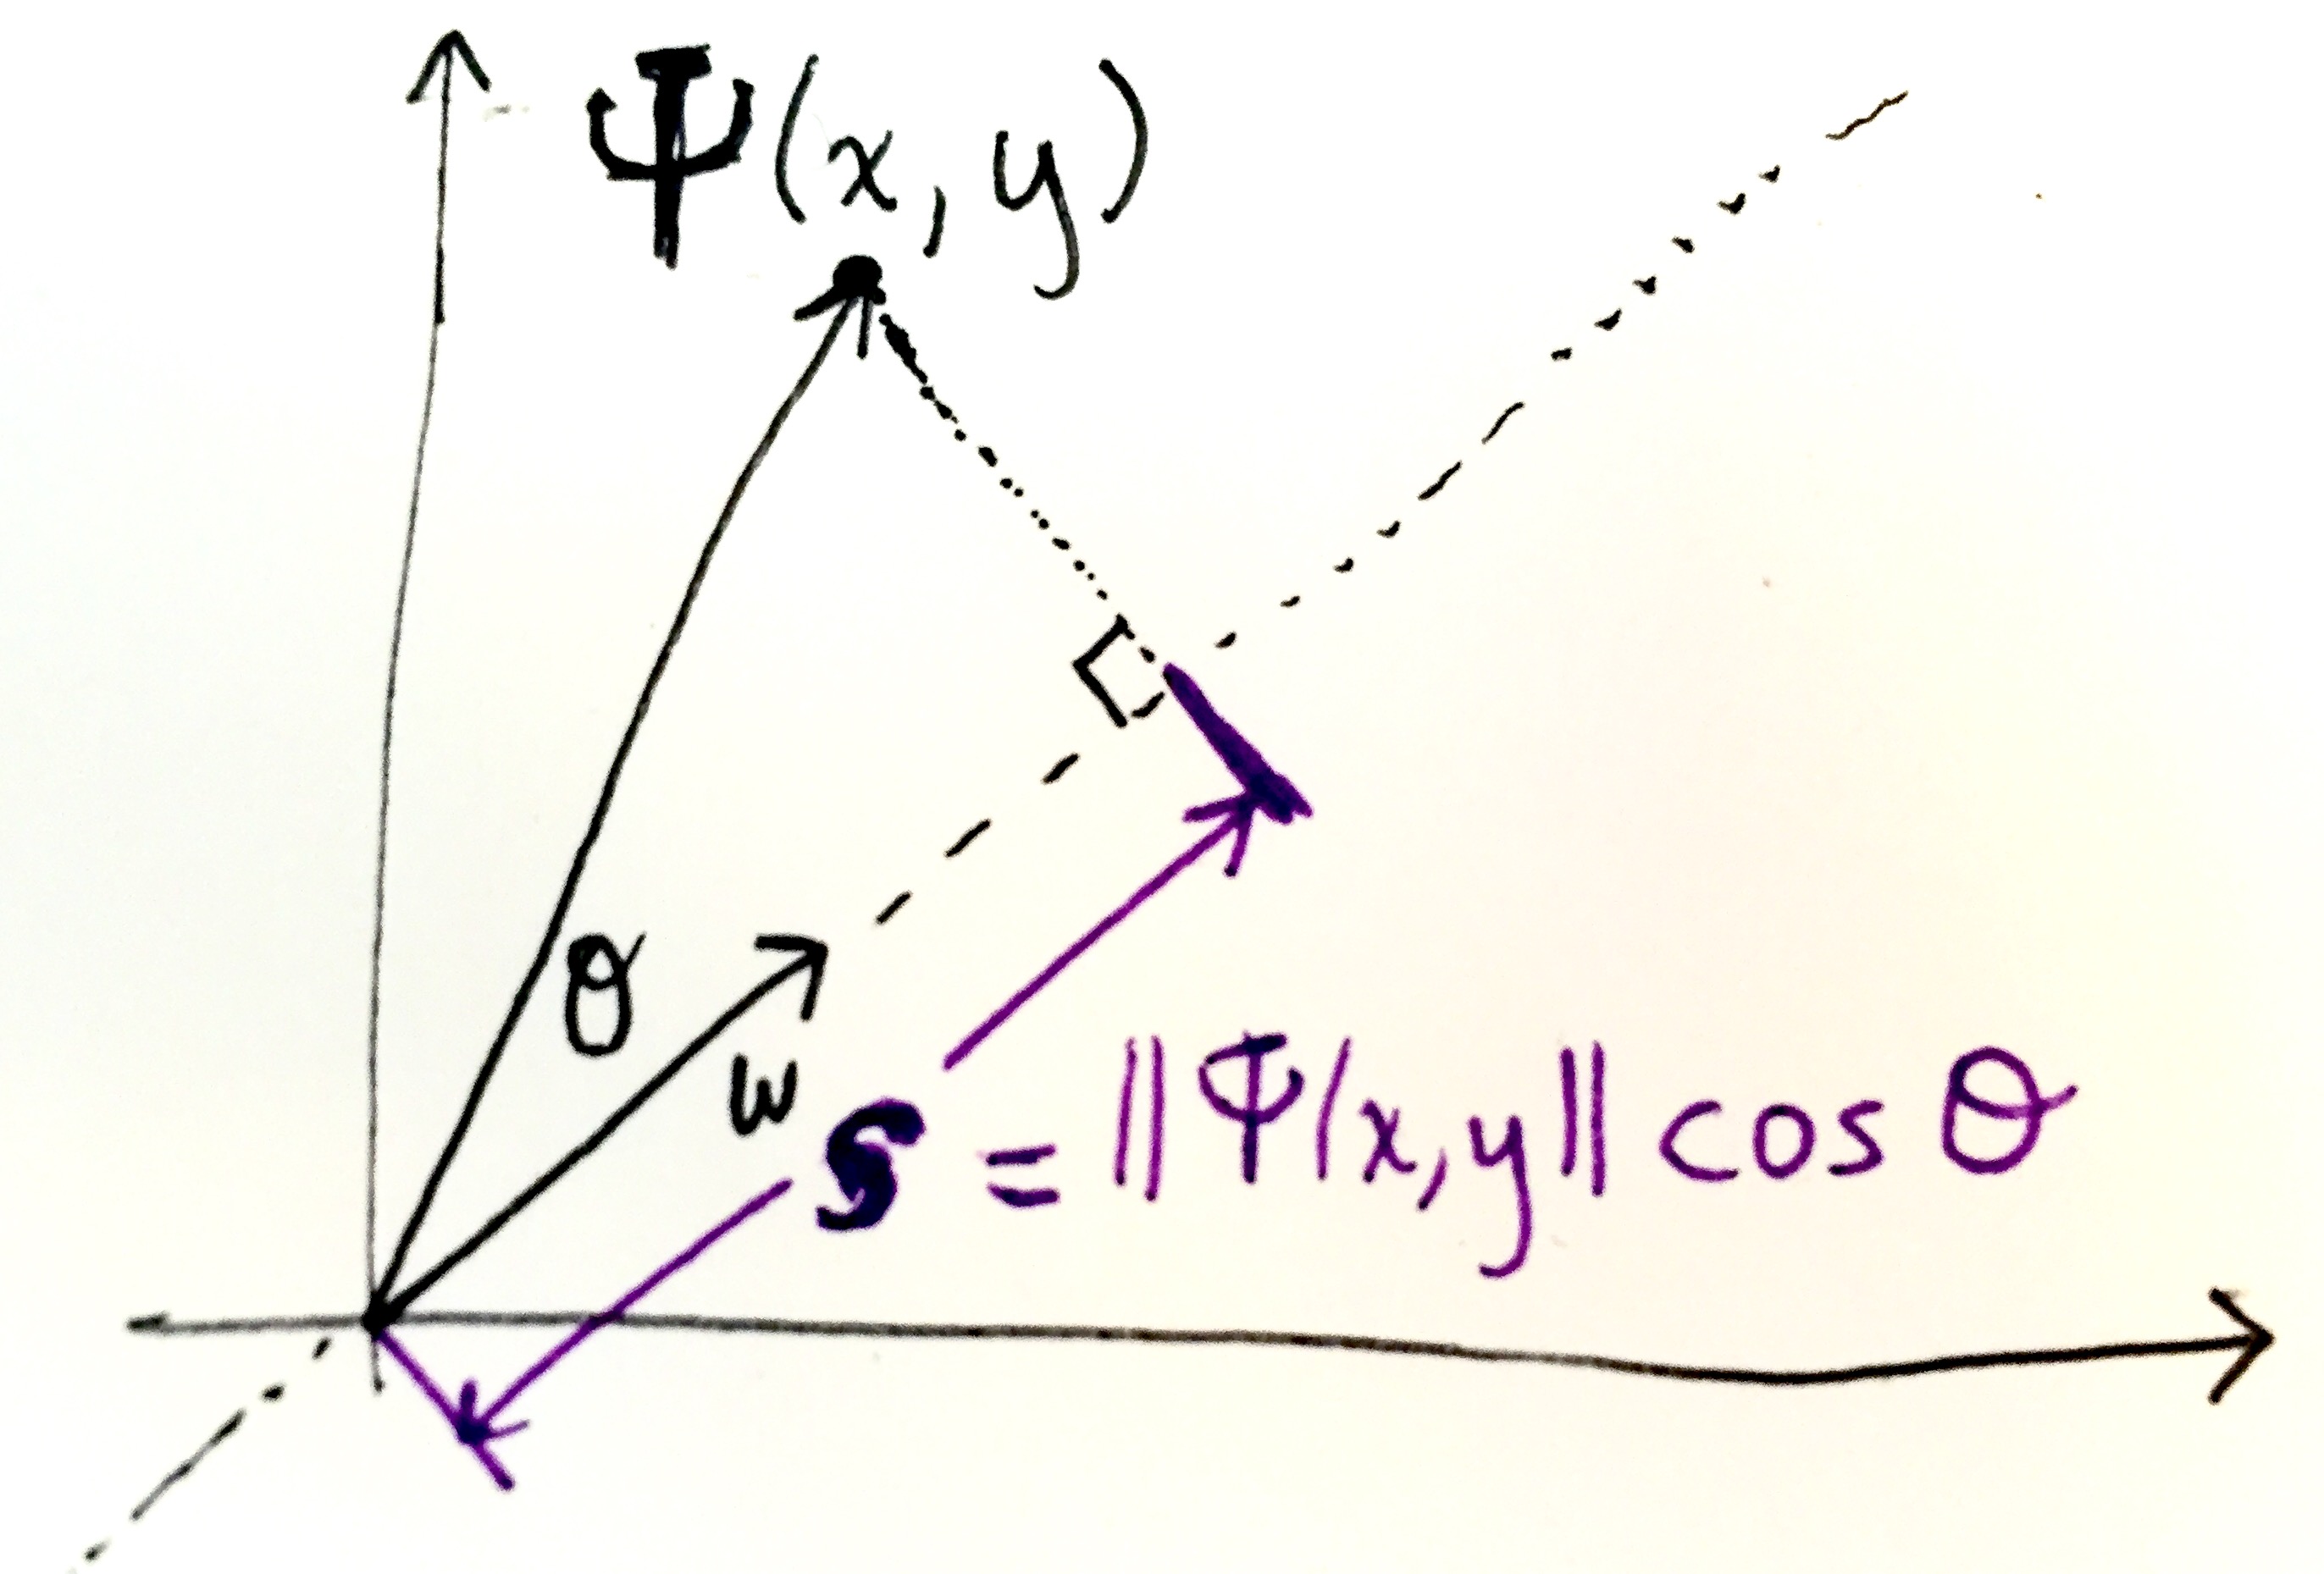 Ψ(x,y)
θ
w
S = ||Ψ(x,y|| cos θ